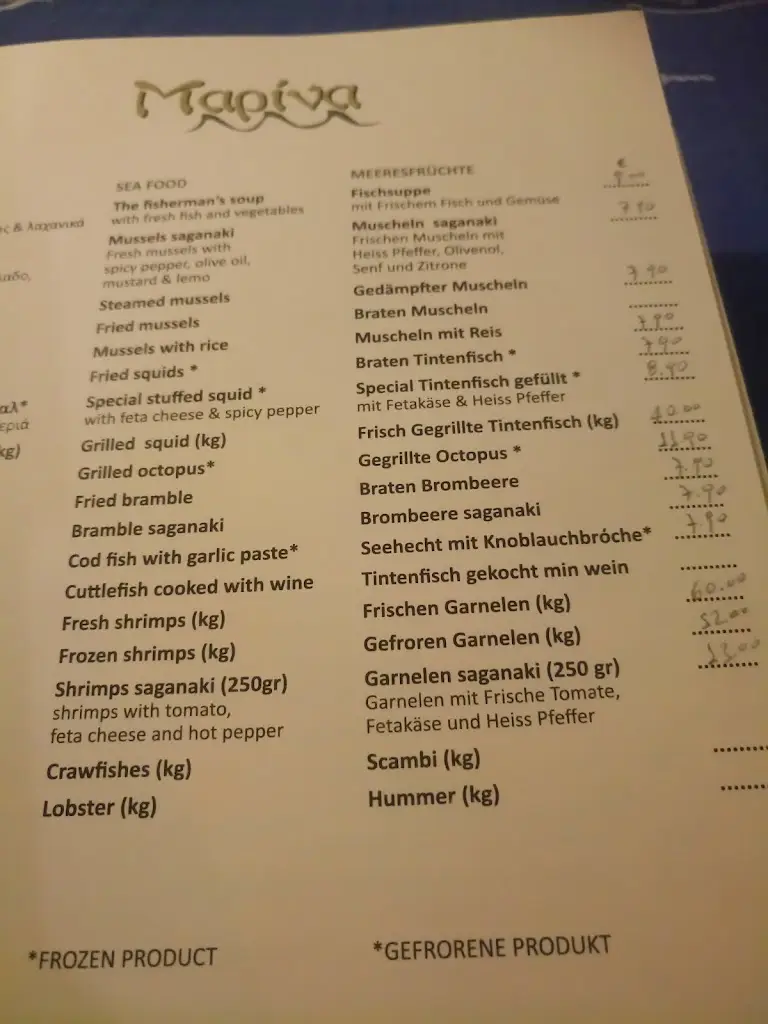 Μαρίνα
ς & λαχανικά
αλ*
εριά
SEA FOOD
The fisherman's soup
with fresh fish and vegetables
Mussels saganaki
Fresh mussels with
spicy pepper, olive oil,
mustard & lemo
Steamed mussels
Fried mussels
Mussels with rice
Fried squids *
Special stuffed squid *
with feta cheese & spicy pepper
Grilled squid (kg)
Grilled octopus*
Fried bramble
Bramble saganaki
Cod fish with garlic paste*
Cuttlefish cooked with wine
Fresh shrimps (kg)
Frozen shrimps (kg)
Shrimps saganaki (250gr)
shrimps with tomato,
feta cheese and hot pepper
Crawfishes (kg)
Lobster (kg)
*FROZEN PRODUCT
MEERESFRÜCHTE
Fischsuppe
mit Frischem Fisch und Gemüse
Muscheln saganaki
Frischen Muscheln mit
Heiss Pfeffer, Olivenol,
Senf und Zitrone
Gedämpfter Muscheln
Braten Muscheln
Muscheln mit Reis
Braten Tintenfisch *
Special Tintenfisch gefüllt *
mit Fetakäse & Heiss Pfeffer
Frisch Gegrillte Tintenfisch (kg)
Gegrillte Octopus *
Braten Brombeere
Brombeere saganaki
Seehecht mit Knoblauchbróche*
Tintenfisch gekocht min wein
Frischen Garnelen (kg)
Gefroren Garnelen (kg)
Garnelen saganaki (250 gr)
Garnelen mit Frische Tomate,
Fetakäse und Heiss Pfeffer
Scambi (kg)
Hummer (kg)
*GEFRORENE PRODUKT
€
9.00
7.90
7.90
7.90
7.90
8.90
40.00
11.90
7.90
7.90
7.90
60.00
52.00
13.00